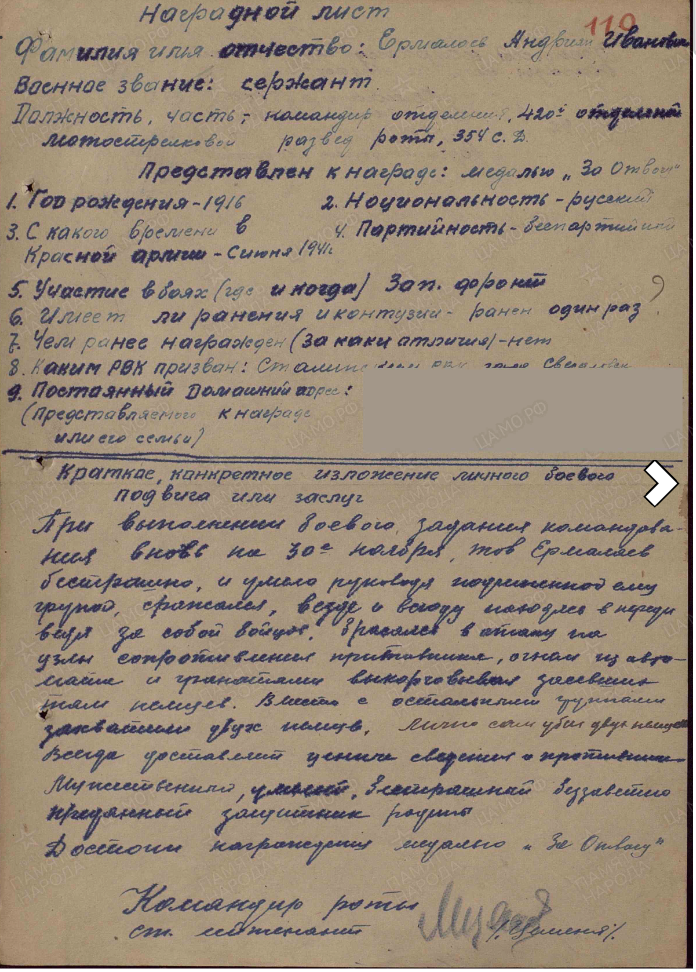 Наградной лист
119
Фамилия имя отчество: Ермалаев Андриан Иванович
Военное звание: сержант
Должность, часть, - командир отделения, 420й отдельной
мотострелковой развед роты, 354 с. д.
Представлен к награде: медалью „За Отвагу"
1. Год рождения - 1916 2. Национальность - русский
3. С какого времени в 4. Партийность - беспартийный
Красной армии - с июня 1941г
5. Участие в боях (где и когда) Зап. фронт
6. Имеет ли ранения и контузии - ранен один раз
7. Чем ранее награжден (за каки отличия) - нет
8. Каким РВК призван:
9. Постоянный домашний адрес:
(представляемого к награде
или его семьи)
Краткое, конкретное изложение личного боевого
подвига или заслуг
При выполнении боевого задания командова-
ния в ночь на 30е ноября, тов Ермалаев
бесстрашно, и умело руководя подчиненной ему
групой, сражался, везде и всюду находясь в переди
ведя за собой бойцов, бросался в атаку на
узлы сопротивления противника, огнем из авто-
мата и гранатами выкорчовывая засевших
там немцев. Вместе с остальными групами
захватили двух немцев. Лично сам убил двух немцев
Всегда доставляет ценные сведения о противнике
Мужественный, умелый, бесстрашный беззаветно
преданный защитник родины
Достоин награждения медалью „За Отвагу"
Командир роты
ст. лейтенант